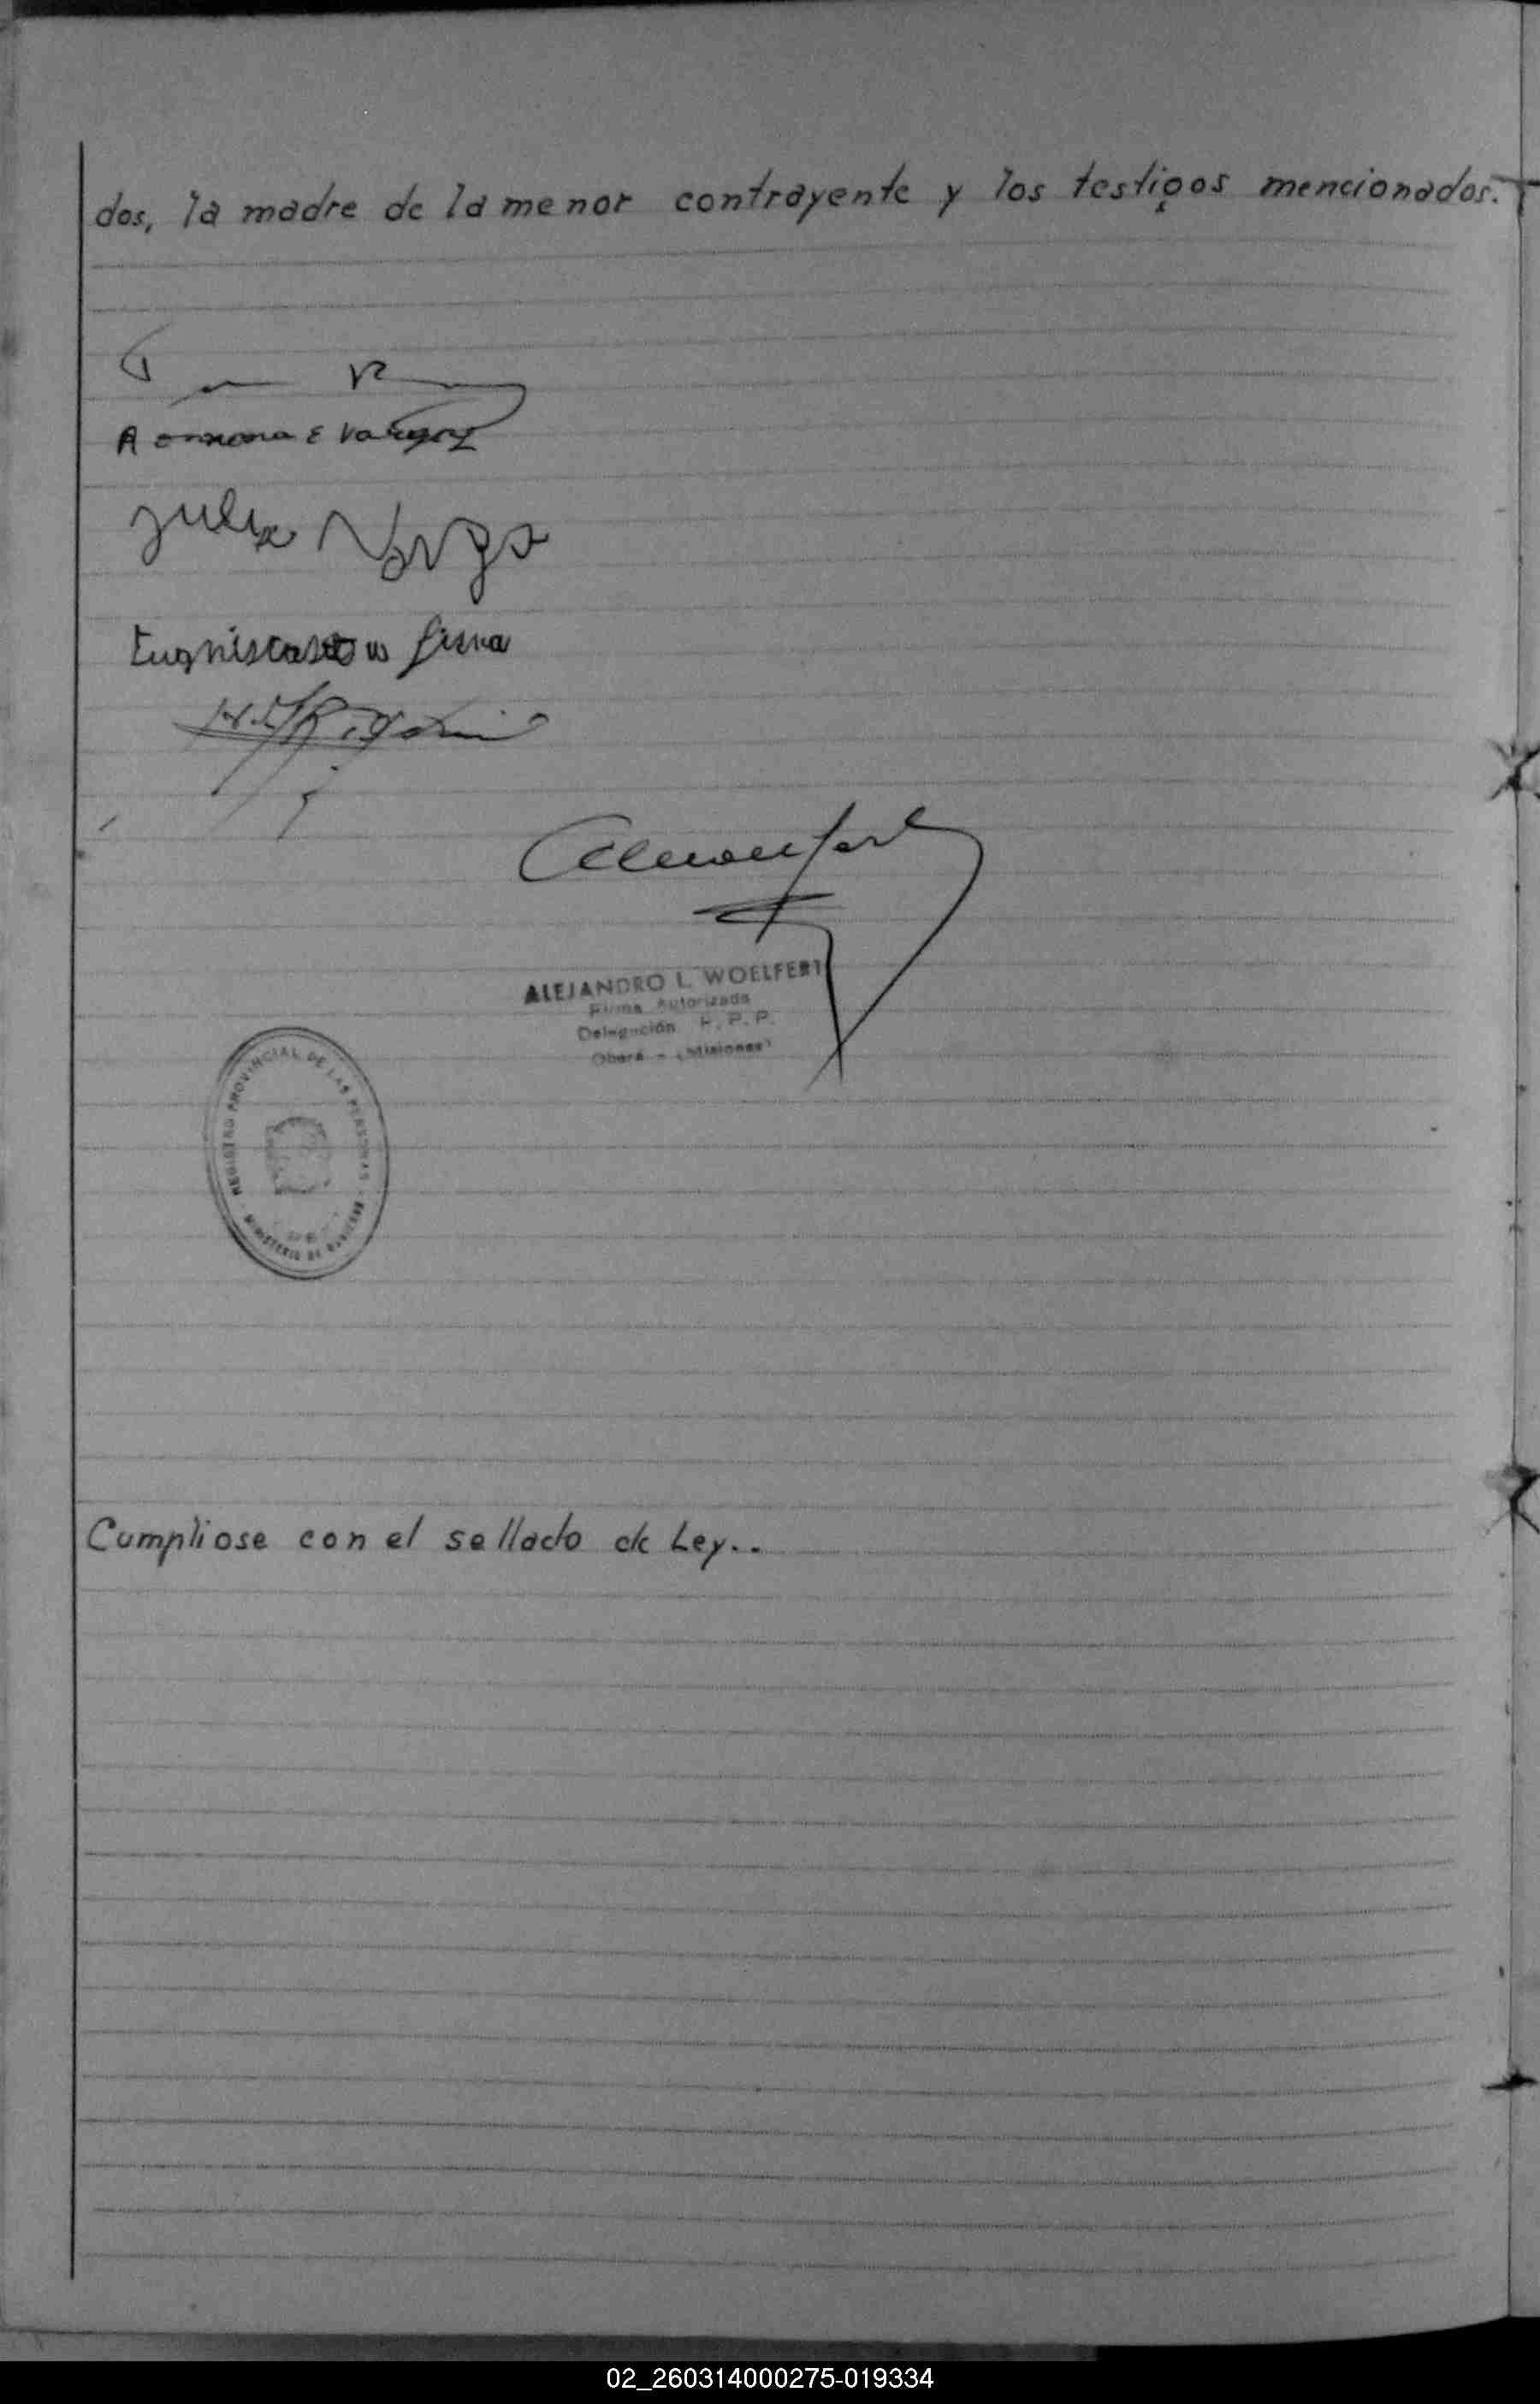 dos, la madre de la menor contrayente y los testigos mencionados.
Julia Vargas
firma
Cumpliose con el sellado de Ley..
ALEJANDRO L. WOELFERT
Firma Autorizada
Delegación R. P. P.
Oberá - (Misiones)
REGISTRO PROVINCIAL DE LAS PERSONAS - MINISTERIO DE GOBIERNO
02_260314000275-019334